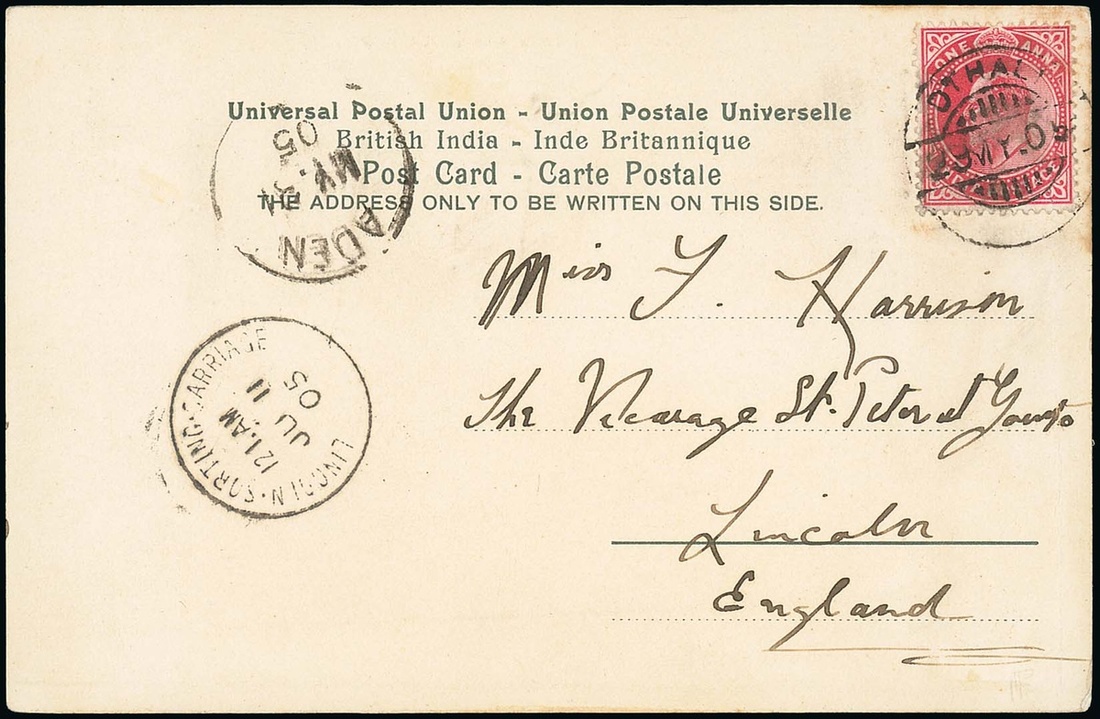 Universal Postal Union - Union Postale Universelle
British India - Inde Britannique
Post Card - Carte Postale
THE ADDRESS ONLY TO BE WRITTEN ON THIS SIDE.
ONE ANNA
DTHAL
MY.05
ADEN
MY.31
05
LINCOLN·SORTING·CARRIAGE
12 AM
JU 11
05
Miss Harrison
The Vicarage St. Peter at
Lincoln
England